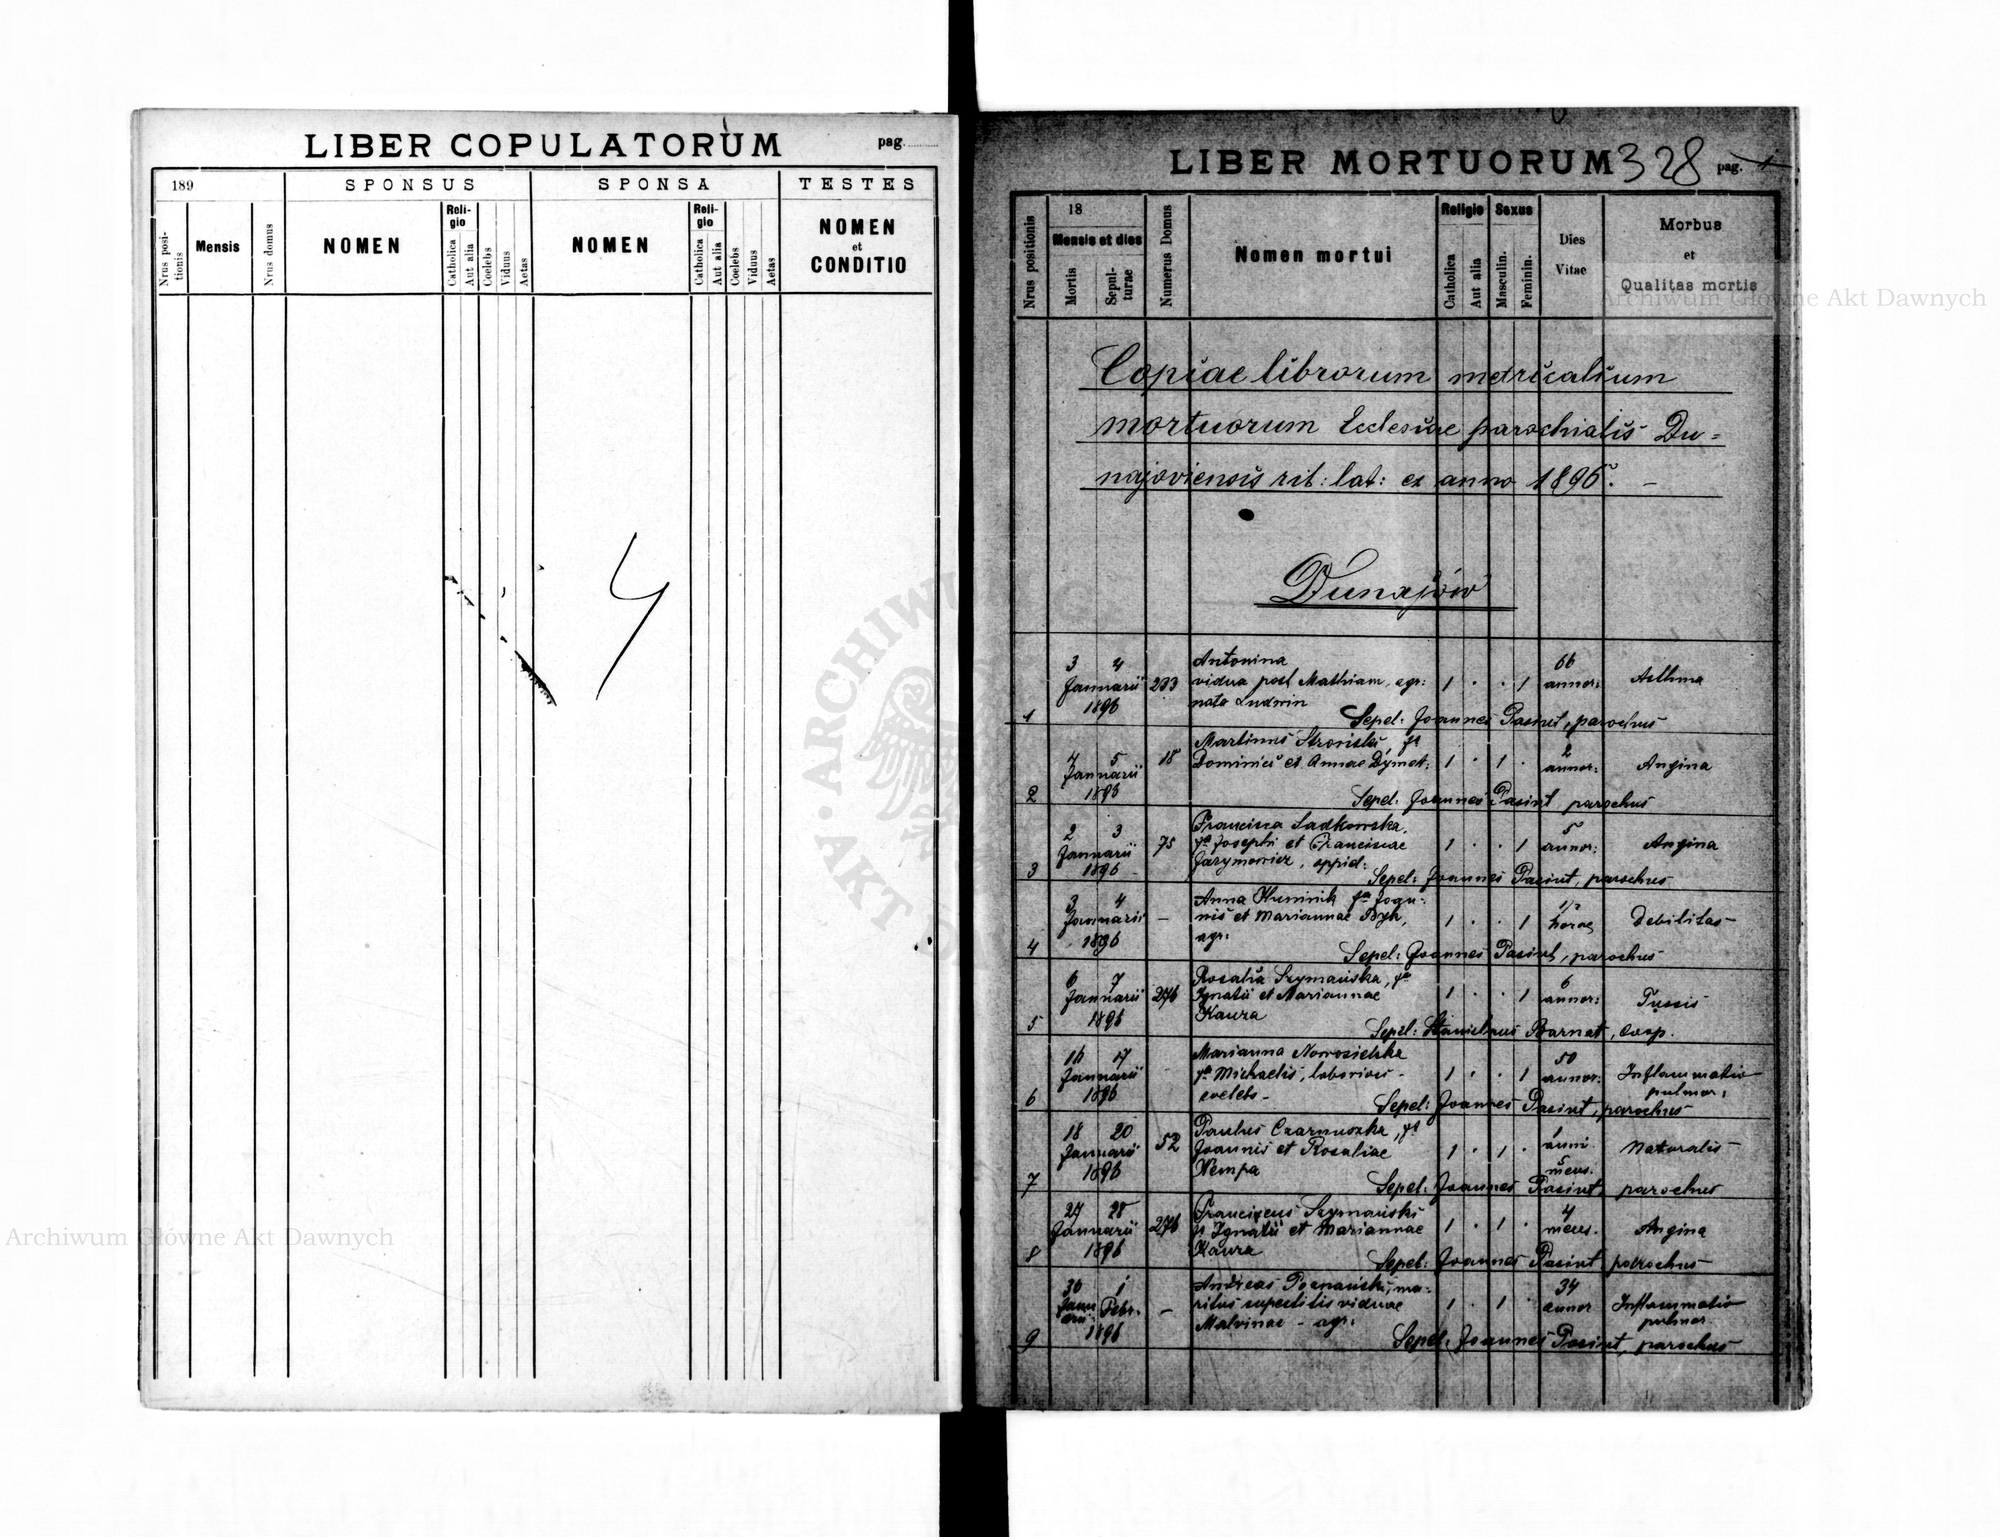 LIBER COPULATORUM
pag.
189
SPONSUS
SPONSA
TESTES
Nrus positionis
Mensis
Nrus domus
NOMEN
Religio
Catholica
Aut alia
Coelebs
Viduus
Aetas
NOMEN
Religio
Catholica
Aut alia
Coelebs
Viduus
Aetas
NOMEN
et
CONDITIO
LIBER MORTUORUM
328
pag. 1
Nrus positionis
18
Mensis et dies
Mortis
Sepulturae
Numerus Domus
Nomen mortui
Religio
Catholica
Aut alia
Sexus
Masculin.
Feminin.
Dies
Vitae
Morbus
et
Qualitas mortis
Copiae librorum metricalium
mortuorum Ecclesiae parochialis Du=
najoviensis rit: lat: ex anno 1896. –
Dunajów
1 3 4 Januarii 1896 233
Antonina
vidua post Mathiam, agr:
nato Ludwin
1 . . 1 66 annor: Asthma
Sepel: Joannes Pasiut, parochus
2 4 5 Januarii 1896 18
Martinus fs
Dominici et Annae Dymet:
1 . 1 . 2 annor: Angina
Sepel: Joannes Pasiut parochus
3 2 3 Januarii 1896 75
Francisca Sadkowska,
fa Josephi et Franciscae
Jarymowicz, oppid:
1 . . 1 5 annor: Angina
Sepel: Joannes Pasiut, parochus
4 3 4 Januarii 1896 –
Anna Huminik fa Joan-
nis et Mariannae
agr:
1 . . 1 1/2 horae Debilitas
Sepel: Joannes Pasiut, parochus
5 6 7 Januarii 1896 276
Rosalia Szymańska, fa
Ignatii et Mariannae
Kaura
1 . . 1 6 annor: Tussis
Sepel: Stanislaus Barnat, coop.
6 16 17 Januarii 1896
Marianna Nowosielska
fa Michaelis,
coelebs –
1 . . 1 50 annor: Inflammatio
pulmor:
Sepel: Joannes Pasiut, parochus
7 18 20 Januarii 1896 52
Paulus Czarnuszka, fs
Joannis et Rosaliae
Wempa
1 . 1 . 1 anni 5 mens. Naturalis
Sepel: Joannes Pasiut, parochus
8 27 28 Januarii 1896 276
Franciscus Szymański
fs Ignatii et Mariannae
Kaura
1 . 1 . 4 mens. Angina
Sepel: Joannes Pasiut parochus
9 30 Januarii 1 Febr. 1896 –
Andreas Poznański, ma-
ritus superstitis viduae
Malvinae – agr:
1 . 1 . 34 annor Inflammatio
pulmor.
Sepel: Joannes Pasiut, parochus
Archiwum Główne Akt Dawnych
Archiwum Główne Akt Dawnych